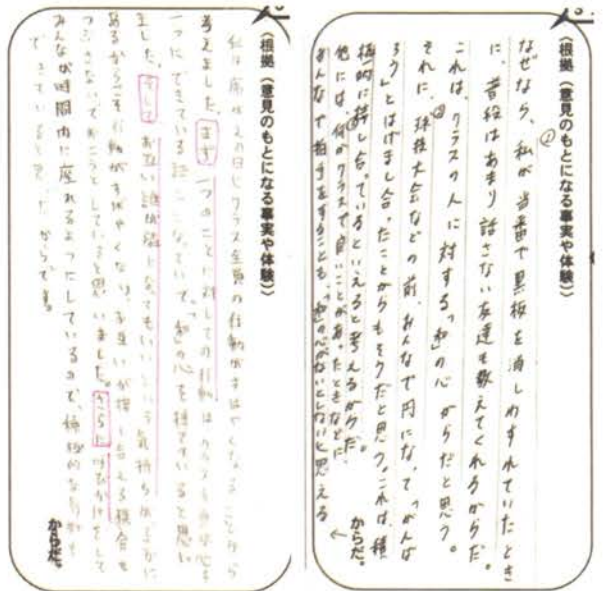 〈根拠(意見のもとになる事実や体験)〉
①
なぜなら、私が当番で黒板を消しわすれていたとき
に、普段はあまり話さない友達も教えてくれるからだ。
これは、クラスの人に対する「和」の心からだと思う。
②
それに、球技大会などの前、みんなで円になって「がんば
ろう」とはげまし合ったことからもそうだと思う。これは、積
極的に接し合っているといえると考えるからだ。
他には、何かクラスで良いことがあったときなどに
みんなで拍手をすることも、「和」の心がないとしないと思える
からだ。
〈根拠(意見のもとになる事実や体験)〉
クラス全員の行動がすばやくなることから
考えました。まず一つのことに対しての行動は、クラス
一つにできている
「和」の心を
思い
ました。そしてお互い誰が
てもいいという気持ちが
あるからこそ行動がすばやくなり、お互いが接し合える機会も
つぶさないでおこうとしていると思いました。さらに呼びかけをして
みんなが時間内に座れるようにしているので、積極的な
できていると思ったからです。
からだ。